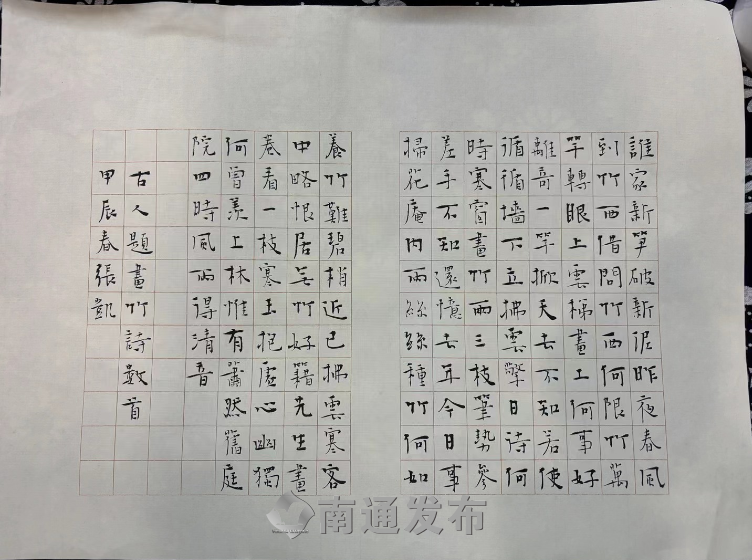 誰家新笋破新泥昨夜春風
到竹西借問竹西何限竹萬
竿轉眼上雲梯畫工何事好
離奇一竿掀天去不知若使
循循墻下立拂雲擎日待何
時寒窗畫竹兩三枝筆勢參
差手不知還憶去年今日事
掃花庵内雨絲絲種竹何如
養竹難碧梢近已拂雲寒客
中略恨居无竹好籍先生畫
卷看一枝寒玉抱虛心幽獨
何曾羨上林惟有蕭然舊庭
院四時風雨得清音
古人題畫竹詩數首
甲辰春張凱
南通发布